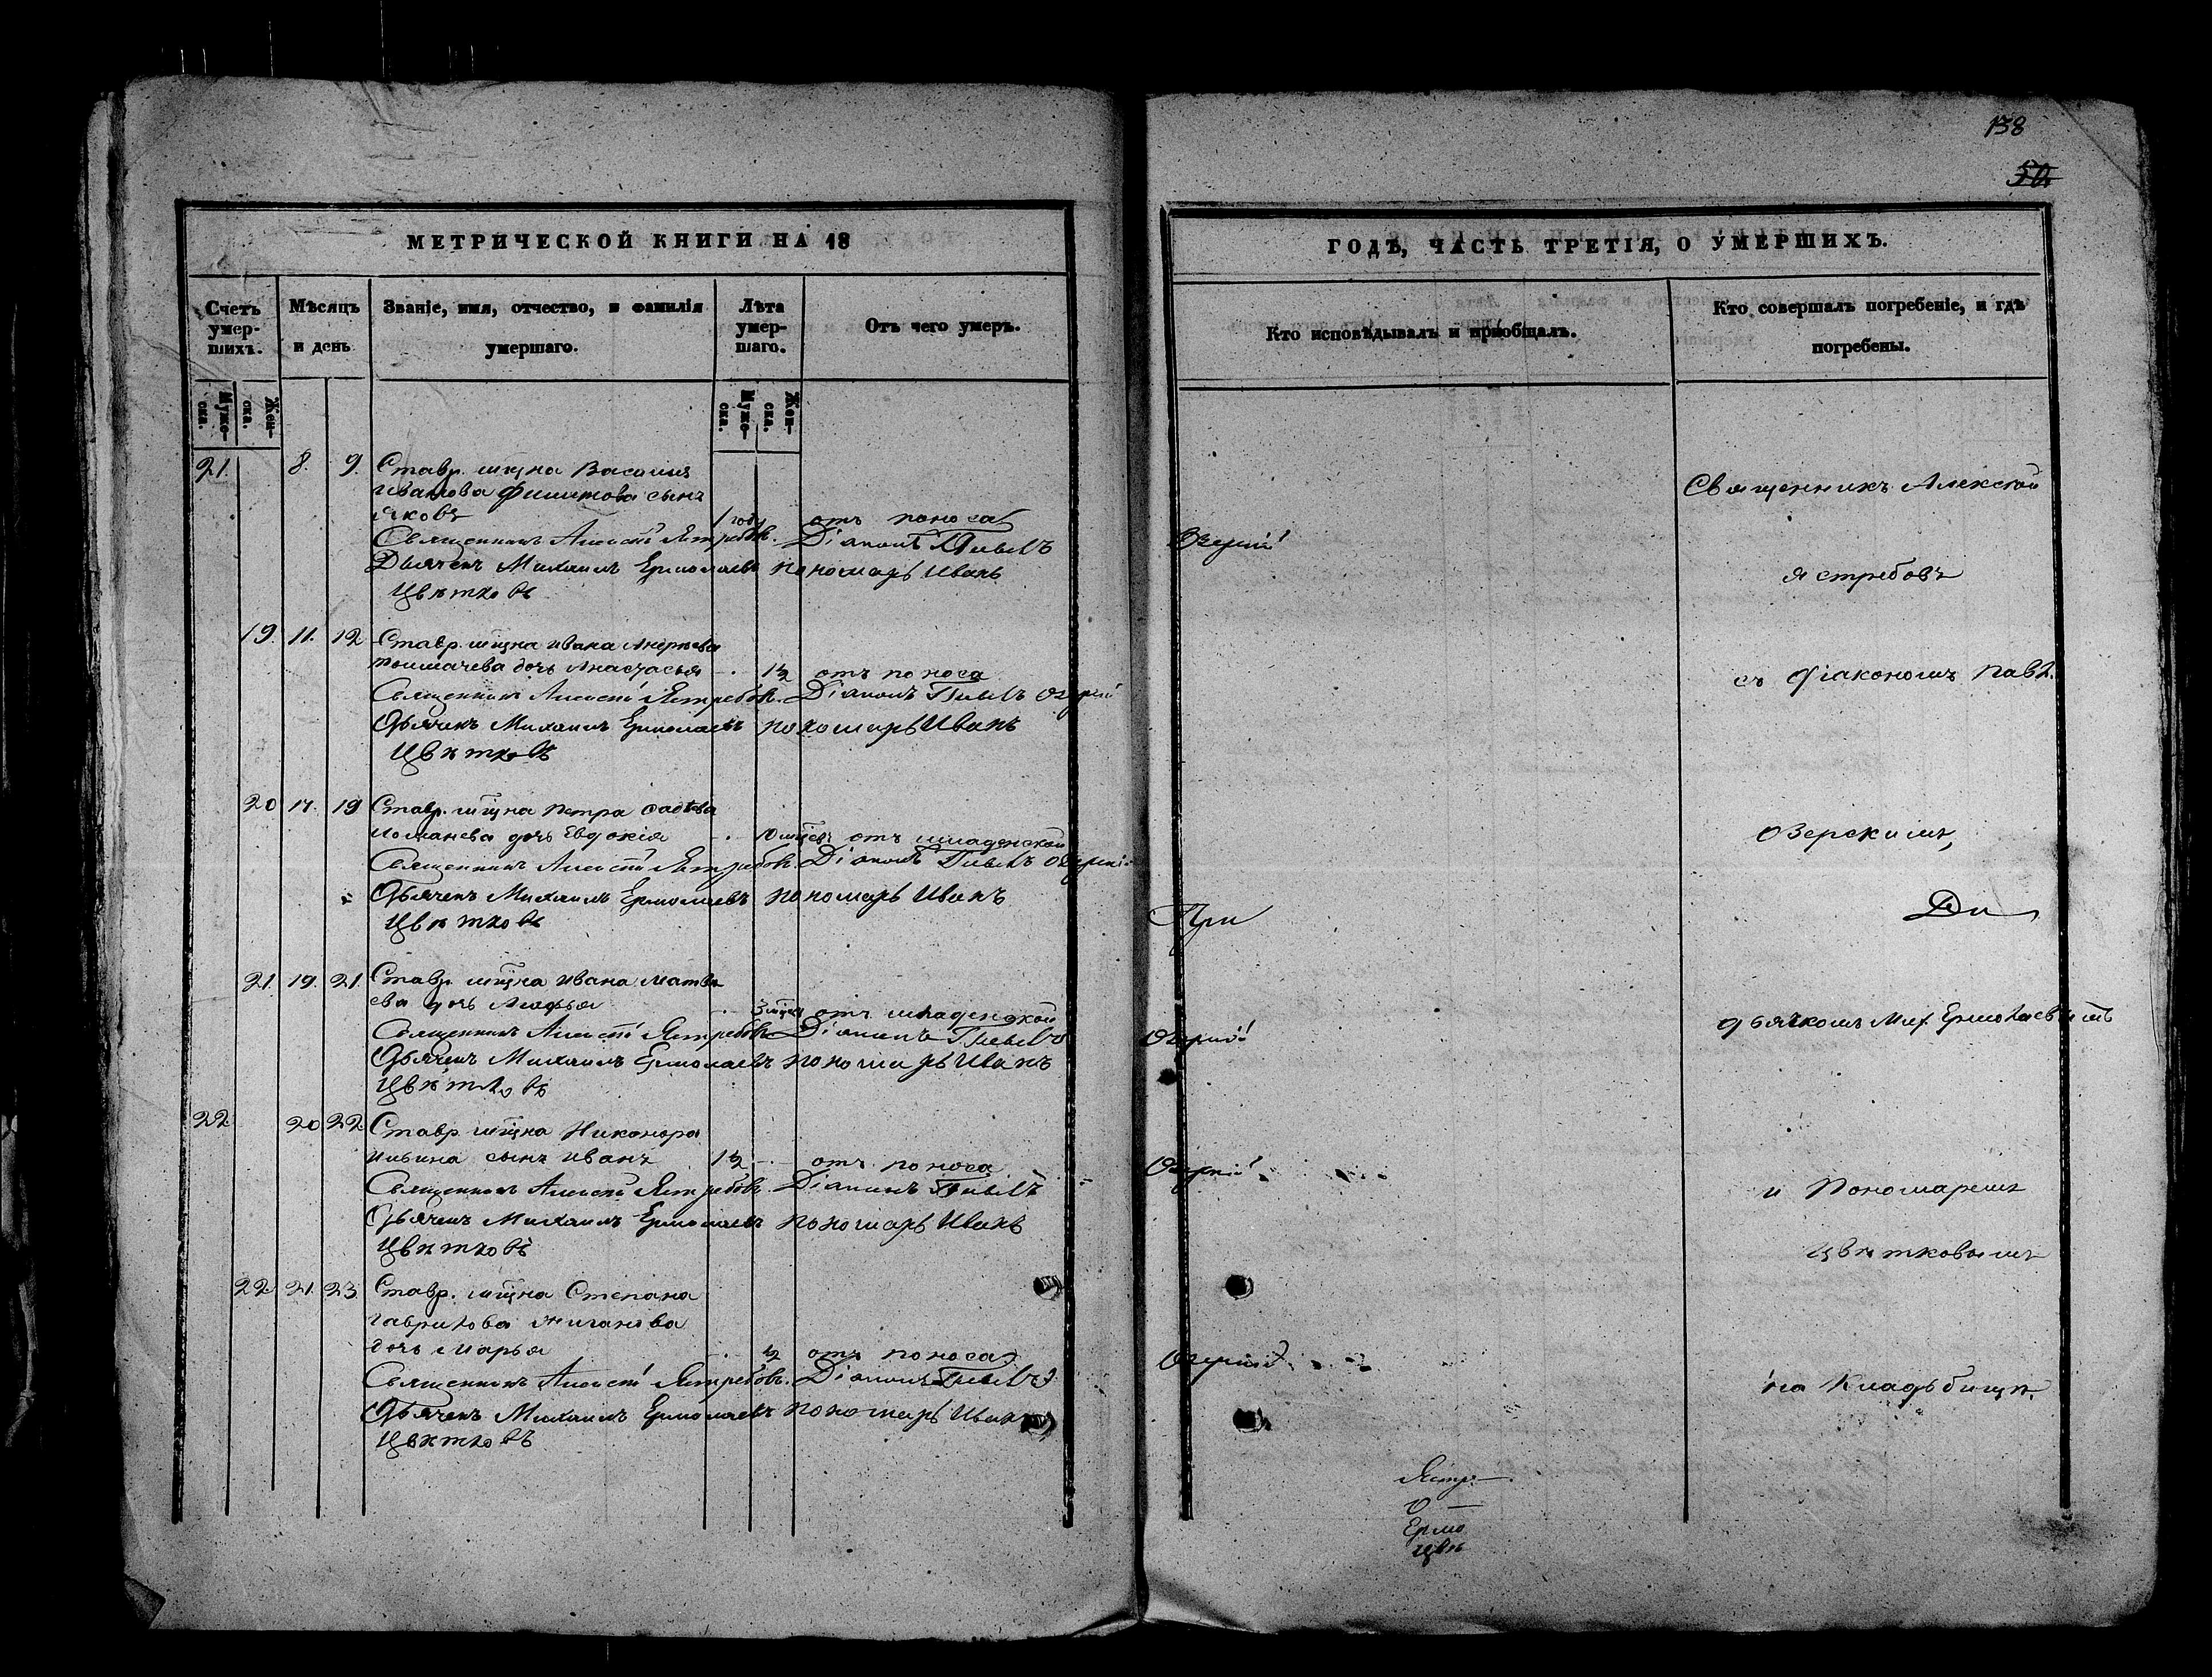 138
50
МЕТРИЧЕСКОЙ КНИГИ НА 18
Счетъ умер-шихъ.
Мѣсяцъ и день
Званіе, имя, отчество, и фамилія умершаго.
Лѣта умер-шаго.
Отъ чего умеръ.
Мужс-ска.
Жен-ска.
Мужс-ска.
Жен-ска.
21. 8. 9. Ставр. мщна Василия
Иванова Филипова сынъ
Яковъ 1 году отъ поноса
Священникъ Алексѣй Ястребовъ. Діаконъ Павелъ Озерскій
Дьячекъ Михаилъ Ермолаевъ пономарь Иванъ
Цвѣтковъ
19. 11. 12 Ставр. мщна Ивана
дочь Анастасья 1½ отъ поноса
Священникъ Алексѣй Ястребовъ. Діаконъ Павелъ Озерскій
Дьячекъ Михаилъ Ермолаевъ пономарь Иванъ
Цвѣтковъ
20 17. 19 Ставр. мщна Петра
дочь Евдокія 10 мцевъ отъ младенской
Священникъ Алексѣй Ястребовъ. Діаконъ Павелъ Озерскій
Дьячекъ Михаилъ Ермолаевъ пономарь Иванъ
Цвѣтковъ
21. 19. 21. Ставр. мщна Ивана Матвѣ
ева дочь 3 мцев отъ младенской
Священникъ Алексѣй Ястребовъ Діаконъ Павелъ Озерскій
Дьячекъ Михаилъ Ермолаевъ пономарь Иванъ
Цвѣтковъ
22 20 22 Ставр. мщна Никонора
Ильина сынъ Иванъ 1½ отъ поноса
Священникъ Алексѣй Ястребовъ. Діаконъ Павелъ Озерскій
Дьячекъ Михаилъ Ермолаевъ пономарь Иванъ
Цвѣтковъ
22 21. 23. Ставр. мщна Степана
Гаврилова Жиганова
дочь Марья ½ отъ поноса
Священникъ Алексѣй Ястребовъ. Діаконъ Павелъ Озерскій
Дьячекъ Михаилъ Ермолаевъ пономарь Иванъ
Цвѣтковъ
ГОДЪ, ЧАСТЬ ТРЕТІЯ, О УМЕРШИХЪ.
Кто исповѣдывалъ и пріобщалъ.
Кто совершалъ погребеніе, и гдѣ погребены.
Священникъ Алексѣй
Ястребовъ
съ Діакономъ Павл.
Озерскимъ,
При
Ди
дьячкомъ Мих. Ермолаевымъ
и Пономаремъ
Цвѣтковымъ
на Кладьбищѣ.
Ястр.
О
Ермо
Цвѣ